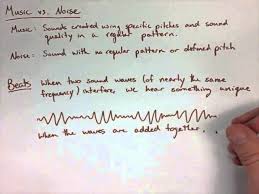 Music vs. Noise
Music: Sounds created using specific pitches and sound
quality in a regular pattern.
Noise: Sound with no regular pattern or defined pitch
Beats When two sound waves (of nearly the same
frequency) interfere, we hear something unique
When the waves are added together,